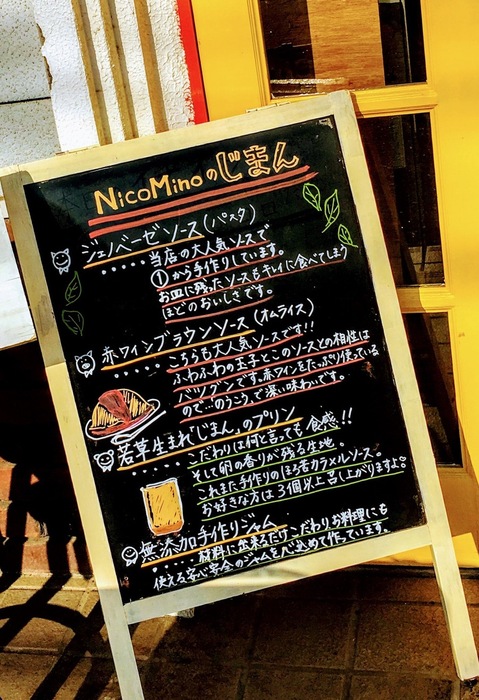 NicoMinoのじまん
ジェノベーゼソース(パスタ)
・・・・・当店の大人気ソースで
①から手作りしています。
お皿に残ったソースもキレイに食べてしまう
ほどのおいしさです。
赤ワインブラウンソース(オムライス)
・・・・・こちらも大人気ソースです!!
ふわふわの玉子とこのソースとの相性は
バツグンです。赤ワインをたっぷり使っている
ので…のうこう、で深い味わいです。
若草生まれ「じまん」のプリン
・・・・・こだわりは何と言っても食感!!
そして卵の香りが残る生地。
これまた手作りのほろ苦カラメルソース。
お好きな方は3個以上召し上がりますよ
無添加手作りジャム
・・・・・材料に出来るだけこだわりお料理にも
使える安心安全のジャムを心込めて作っています。